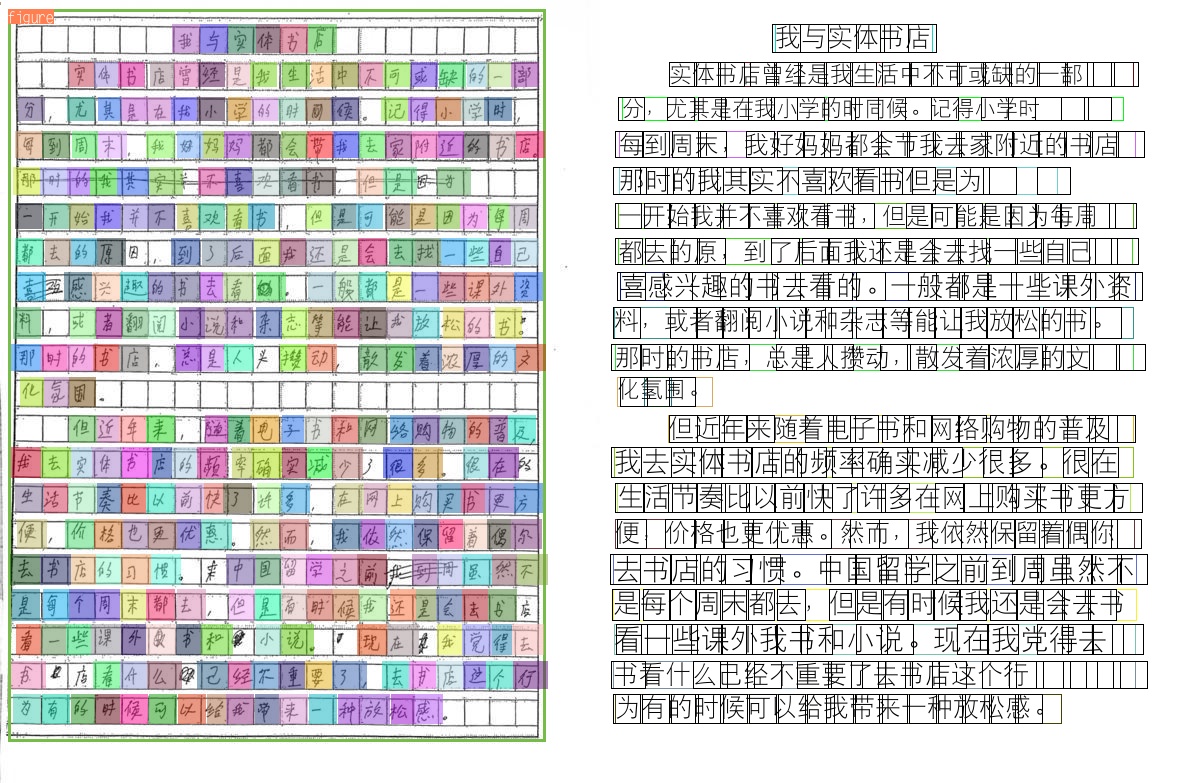 figure
我与实体书店
实体书店曾经是我生活中不可或缺的一部
分，尤其是在我小学的时间候。记得小学时，
每到周末，我好妈妈都会带我去家附近的书店。
那时的我其实不喜欢看书，但是因为
一开始我并不喜欢看书，但是可能是因为每周
都去的原因，到了后面我还是会去找一些自己
感兴趣的书去看的。一般都是一些课外资
料，或者翻阅小说和杂志等能让我放松的书。
那时的书店，总是人头攒动，散发着浓厚的文
化氛围。
但近年来，随着电子书和网络购物的普及，
我去实体书店的频率确实减少了很多。很在的
生活节奏比以前快了许多，在网上购买书更方
便，价格也更优惠。然而，我依然保留着偶尔
去书店的习惯。来中国留学之前我到周虽然不
是每个周末都去，但是有时候我还是会去书店
看一些课外书和小说。现在我觉得去
书店看什么已经不重要了，去书店这个行
为有的时候可以给我带来一种放松感。
我与实体书店
实体书店曾经是我生活中不可或缺的一部
分，尤其是在我小学的时间候。记得小学时
每到周末，我好妈妈都会节我去家附近的书店
那时的我其实不喜欢看书但是为
一开始我并不喜欢看书，但是可能是因为每周
都去的原，到了后面我还是会去找一些自己
喜感兴趣的书去看的。一般都是十些课外资
料，或者翻阅小说和杂志等能让我放松的书。
那时的书店，总是人攒动，散发着浓厚的文
化氛围。
但近年来随着电子书和网络购物的普及
我去实体书店的频率确实减少很多。很在
生活节奏比以前快了许多在网上购买书更方
便，价格也更优惠。然而，我依然保留着偶你
去书店的习惯。中国留学之前到周虽然不
是每个周末都去，但是有时候我还是会去书
看一些课外我书和小说。现在我觉得去
书看什么已经不重要了去书店这个行
为有的时候可以给我带来一种放松感。